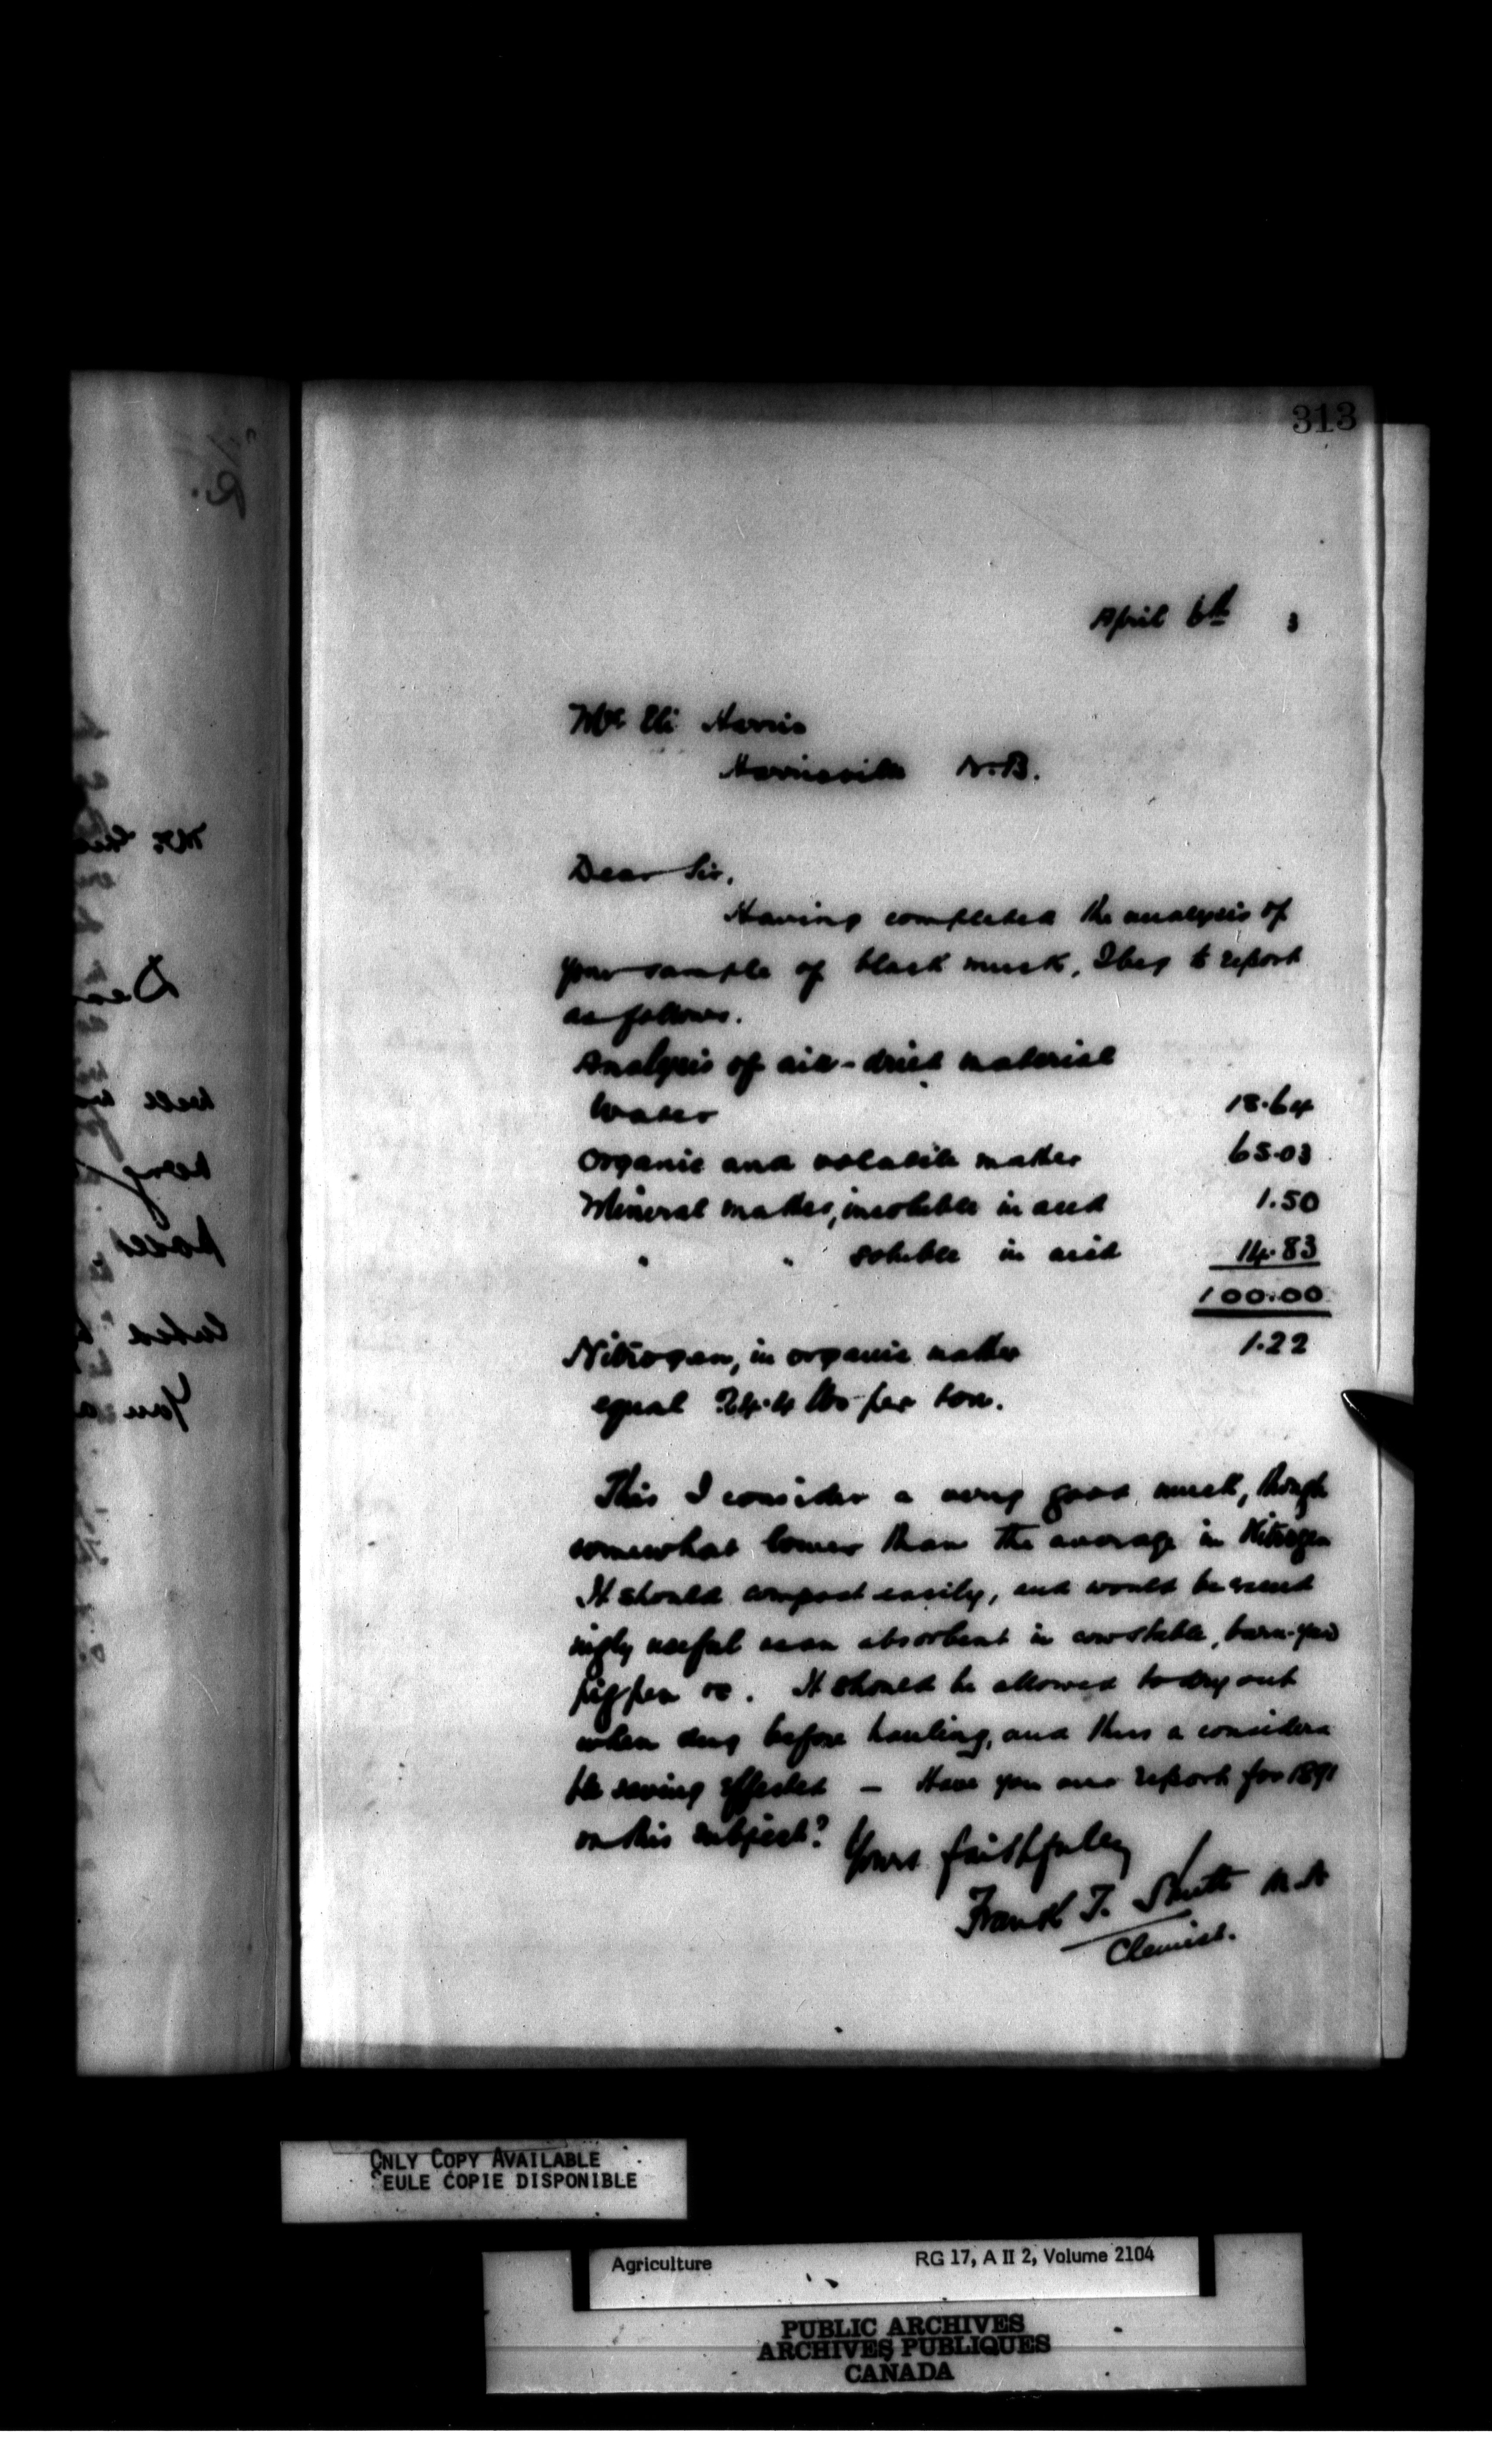 313
April 6th 3
Mr Eli Harris
Harrisville N.B.
Dear Sir,
Having completed the analysis of
your sample of black muck, I beg to report
as follows.
Analysis of air-dried material
Water 18.64
Organic and volatile matter 65.03
Mineral matter, insoluble in acid 1.50
" " soluble in acid 14.83
100.00
Nitrogen, in organic matter 1.22
equal 24.4 lbs per ton.
This I consider a very good muck, though
somewhat lower than the average in Nitrogen
It should compost easily, and would be exceed
ingly useful as an absorbent in cow stable, barn-yard
pig pen &c. It should be allowed to dry out
when dug before hauling, and thus a considera
ble saving effected — Have you our report for 1891
on this subject?
Yours faithfully
Frank T. Shutt M.A
Chemist.
ONLY COPY AVAILABLE
EULE COPIE DISPONIBLE
Agriculture RG 17, A II 2, Volume 2104
PUBLIC ARCHIVES
ARCHIVES PUBLIQUES
CANADA